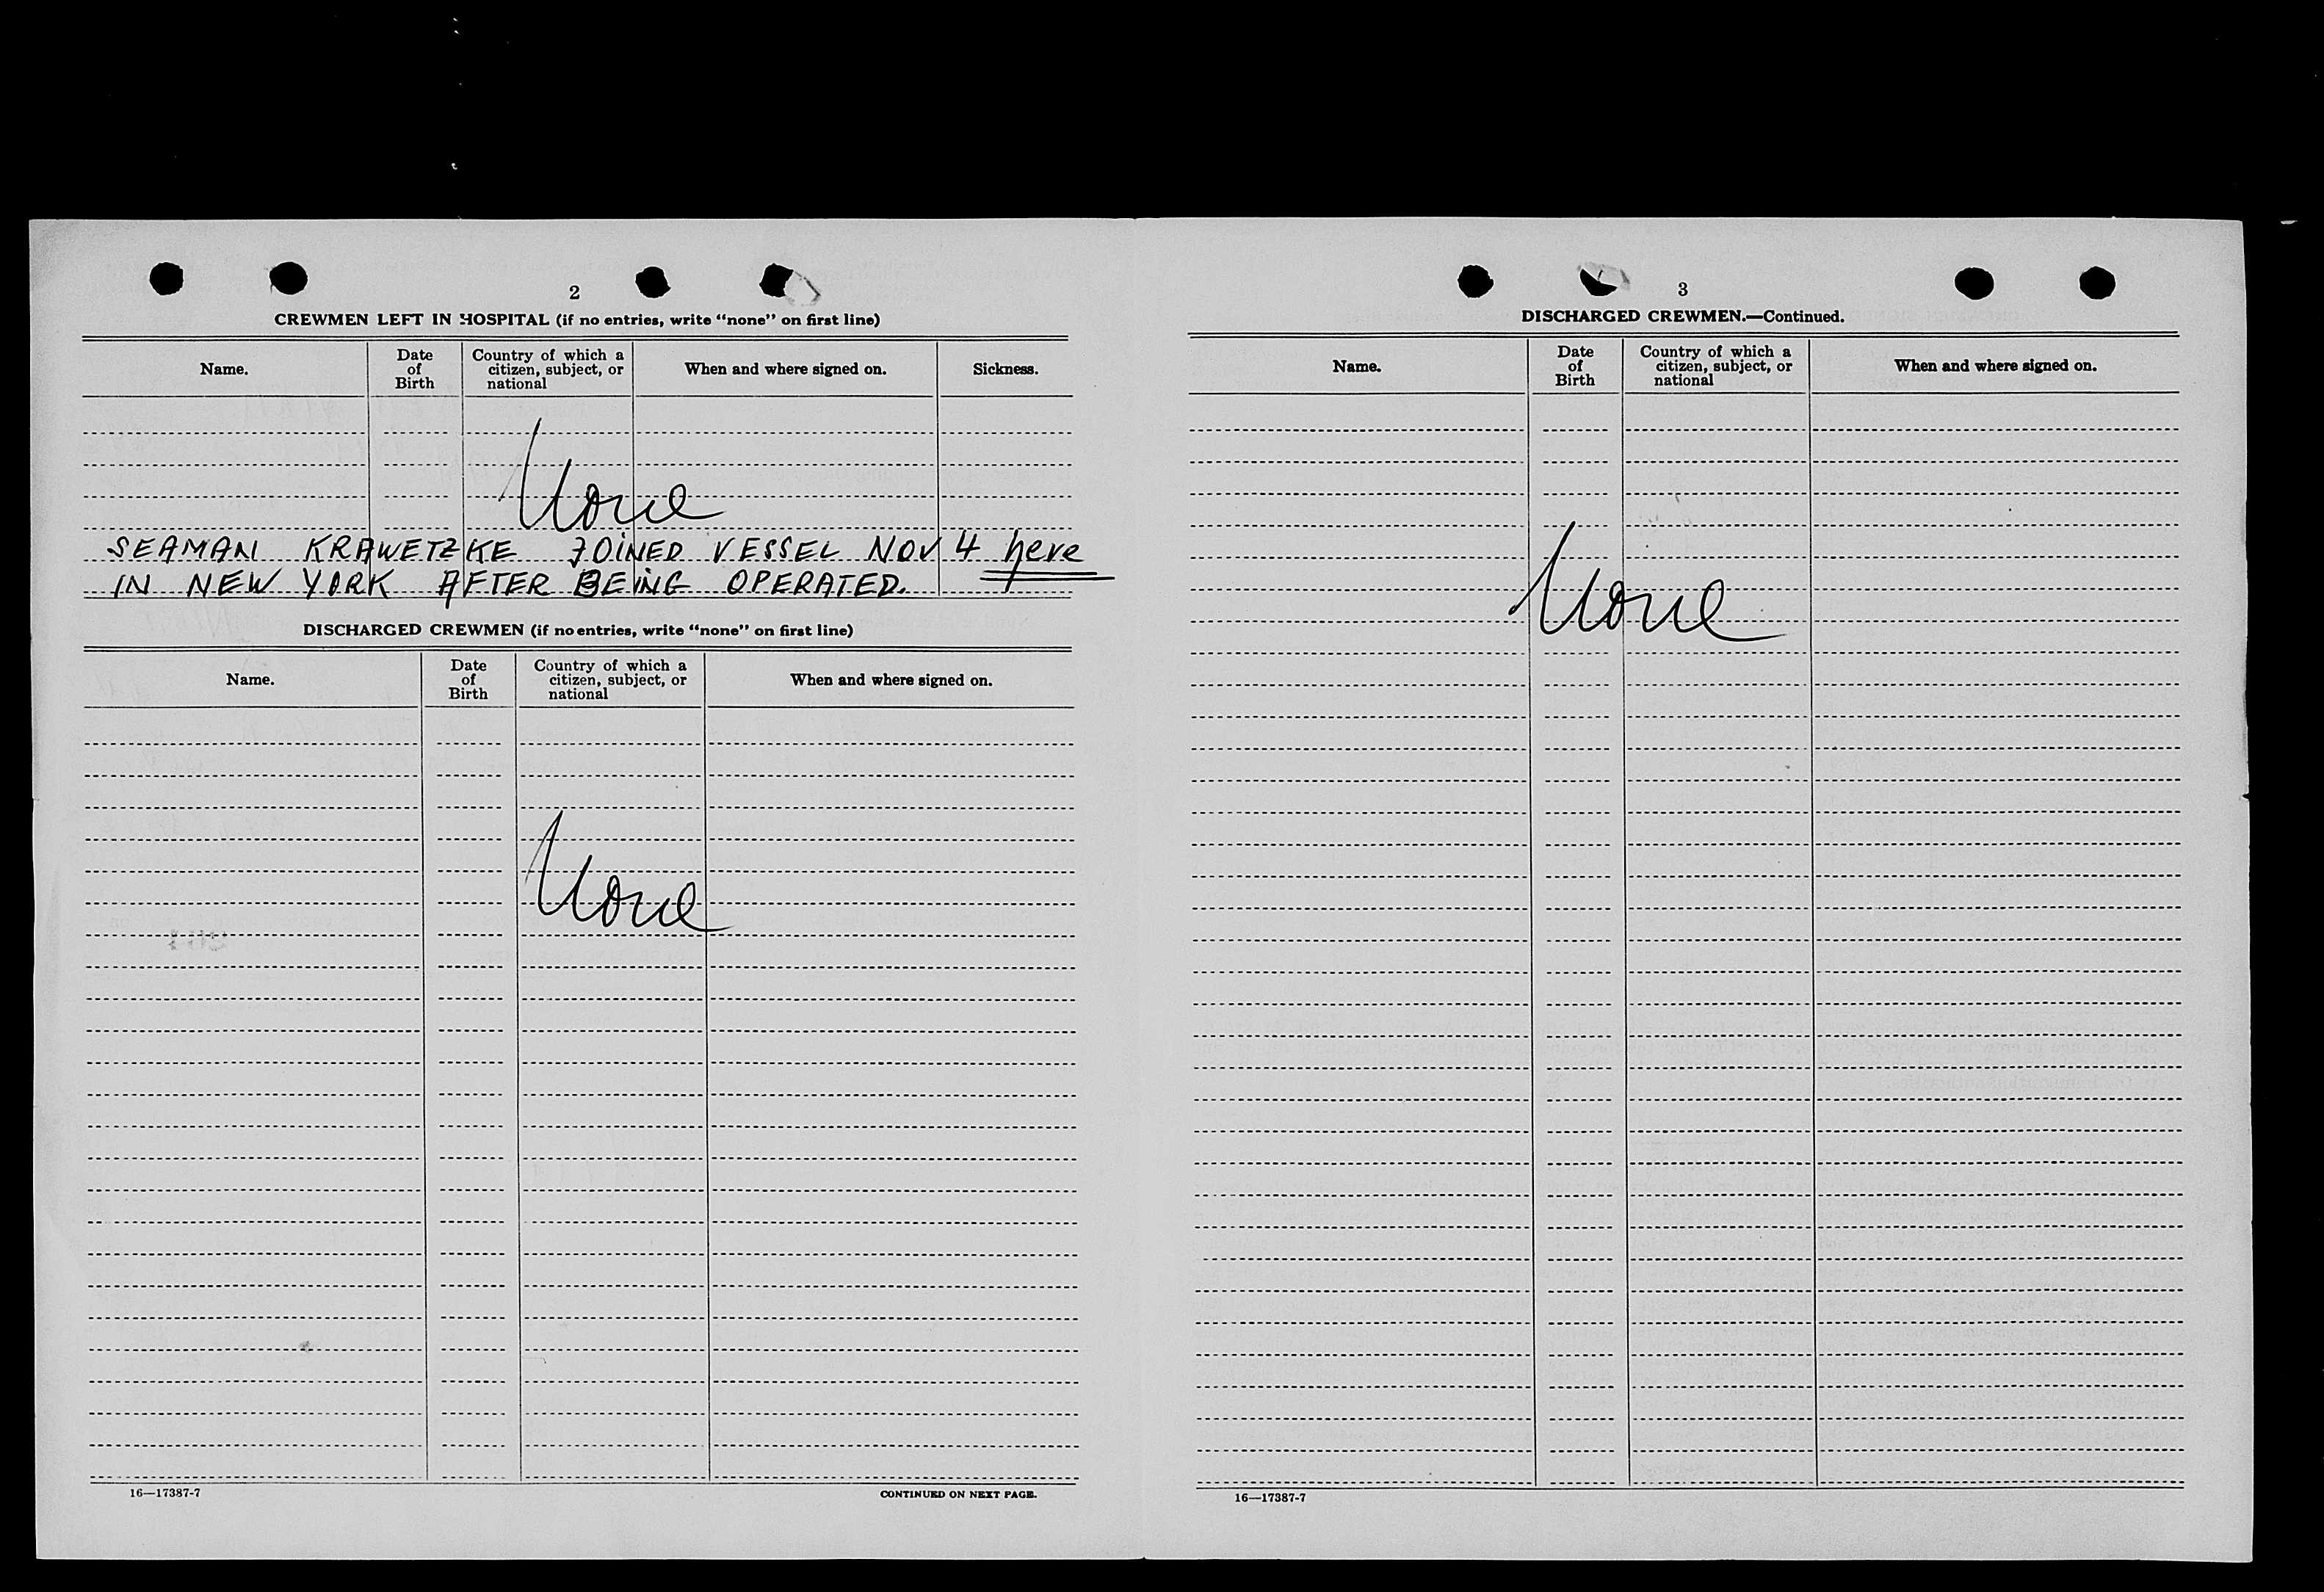 2
CREWMEN LEFT IN HOSPITAL (if no entries, write "none" on first line)
Name.
Date of Birth
Country of which a citizen, subject, or national
When and where signed on.
Sickness.
None
SEAMAN KRAWETZKE JOINED VESSEL NOV 4 here
IN NEW YORK AFTER BEING OPERATED.
DISCHARGED CREWMEN (if no entries, write "none" on first line)
Name.
Date of Birth
Country of which a citizen, subject, or national
When and where signed on.
None
16—17387-7
CONTINUED ON NEXT PAGE.
3
DISCHARGED CREWMEN.—Continued.
Name.
Date of Birth
Country of which a citizen, subject, or national
When and where signed on.
None
16—17387-7